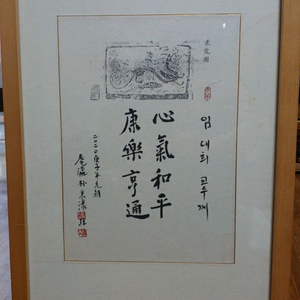 임 대희 교수께
心氣和平
康樂亨通
二〇二〇庚子年元